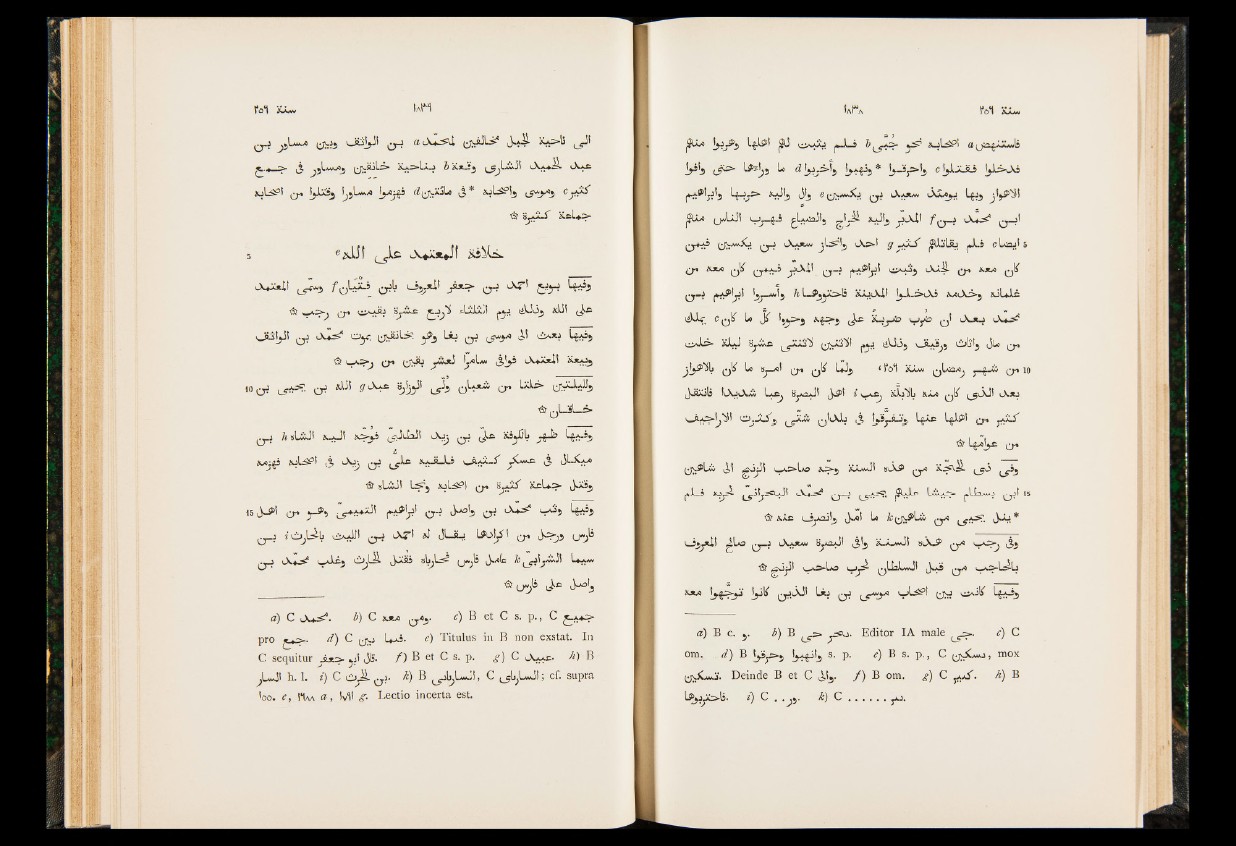 سنة ٢٥٦ ١٨٣٨
فاستنهض a اصحابه نحو جُبَّى b فلم يثبت لهم اهلها وهربوا منهم
فدخلوا فقتلوا c واحرقوا * ونهبوا وأخربوا d ما وراءها حتى وافوا
الاهواز وبها يومئذ سعيد بن يكسين e والٍ واليه حربها وابراهيم
ابن محمّد بن f المدبّر واليه الخراج والضياع فهرب الناس منهم
ايضا c فلم يقاتلهم كثير g احد وانحاز سعيد بن يكسين فيمن
كان معه من الجند وثبت ابراهيم بن المدبّر فيمن كان معه من
غلمانه وخدمه فدخلوا المدينة فاحتووها h وأسروا ابراهيم بن
محمّد بعد ان ضُرب ضربةً على وجهه وحووا كلّ ما كان c يملك
من مال واثاث ورقيف وذلك يوم الاثنين لاثنتى عشرة ليلة خلت
من شهر رمضان سنة ٢٥٦، ولمّا كان من امره ما كان بالاهواز
بعد الذى كان منه بالابلّة رعب i اهل البصرة رعبا شديدا فانتقل
كثير من اهلها عنها وتفرّقوا فى بلدان شتّى وكثرت الاراجيف
من عوامّها ۞
وفى ذى الحجّة من هذه السنة وجّه صاحب الزنج الى شاهين
ابن بسطام جيشا عليهم يحيى بن محمّد البحرانىّ لحربه فلم
* ينل يحيى من شاهين k ما امّل وانصرف عنه ۞
وفى رجب من هذه السنة وافى البصرة سعيد بن صالح المعروف
بالحاجب من قبل السلطان لحرب صاحب الزنج ۞
وفيها كانت بين اصحاب موسى بن بغا الذين كانوا توجّهوا معه
a) B c. و. b) B حى نحر. Editor IA male جى. c) C
om. d) B وانهبوا وخرقوا s. p. e) B s. p., C تسكين, mox
تنسكين. Deinde B et C والى. f) B om. g) C كبير. h) B
فاحتربوها. i) C . . ور. k) C . . . . . . نير.
سنة ٢٥٦ ١٨٣٩
الى ناحية الجبل مخالفين لمحمّد a بن الواثق وبين مساور بن
عبد الحميد الشارى وقعة b بناحية خانقين ومساور فى جمع
كثير c وموسى واصحابه * فى مائتين d فهزموا مساورا وقتلوا من اصحابه
جماعة كثيرة ۞
خلافة المعتمد على الله e
وفيها بويع احمد بن جعفر المعروف بابن فتيان f وسمّى المعتمد
على الله وذلك يوم الثلثاء لاربع عشرة بقيت من رجب ۞
وفيها بعث الى موسى بن بغا وهو بخانقين بموت محمّد بن الواثق
وبيعة المعتمد فوافى سامرّا لعشر بقين من رجب ۞
ولليلتين خلتا من شعبان ولى الوزارة عبيد g الله بن يحيى بن
خاقان ۞
وفيها ظهر بالكوفة على بن زيد الطالبىّ فوُجّه اليه الشاه h بن
ميكال فى عسكر كثيف فلقيه علىّ بن زيد فى اصحابه فهزمه
وقتل جماعة كثيرة من اصحابه ونجا الشاه ۞
وفيها وثب محمّد بن واصل بن ابراهيم التميمىّ وهو من اهل
فارس ورجل من اكرادها يقال له احمد بن الليث بالحارث i بن
سيما الشرابىّ k عامل فارس فحارباه فقتل الحارث وغلب محمّد بن
واصل على فارس ۞
a) C محمد. b) C ومن معه. c) B et C s. p., C جميع
pro جمع. d) C فيما بين. e) Titulus in B non exstat. In
C sequitur قال ابو جعفر. f) B et C s. p. g) C عبيد. h) B
السار h. l. i) C بن الحرث. k) B السارباى, C السارباى; cf. supra
١٥٠٠ e, ١٦٨٨ a, ١٧٨١ g. Lectio incerta est.